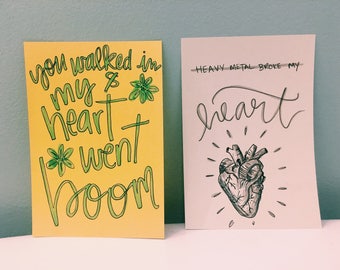 you walked in
&
my
heart
went
boom
HEAVY METAL BROKE MY
heart